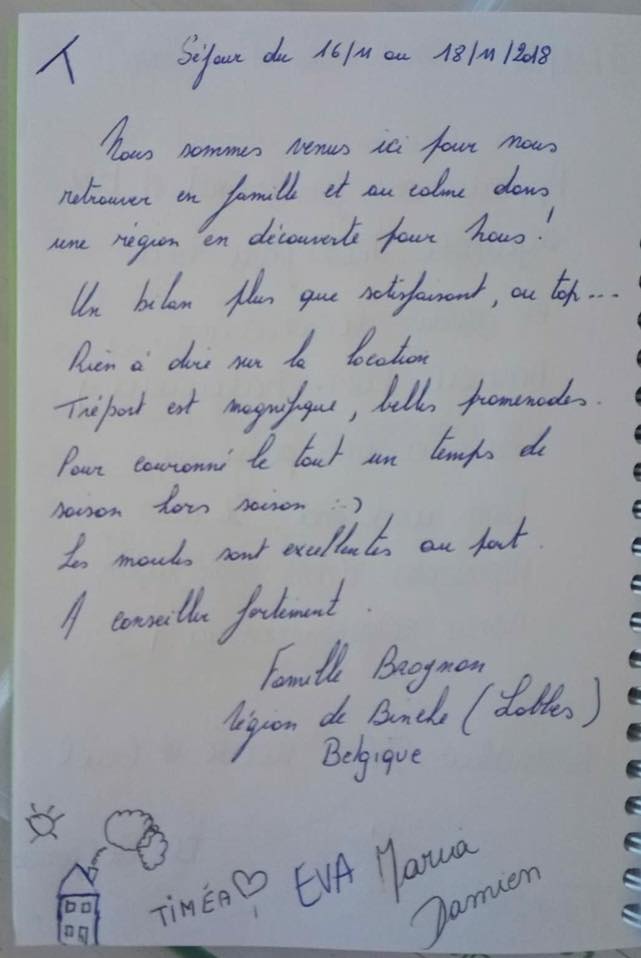 Séjour du 16/11 au 18/11/2018
Nous sommes venus ici pour nous
retrouver en famille et au calme dans
une région en découverte pour nous !
Un bilan plus que satisfaisant, au top...
Rien à dire sur la location
Tréport est magnifique, belles promenades.
Pour couronné le tout un temps de
saison hors saison :-)
Les moules sont excellentes au port.
A conseiller fortement.
Famille Brognon
région de Binche (Lobbes)
Belgique
TIMÉA EVA Maria
Damien